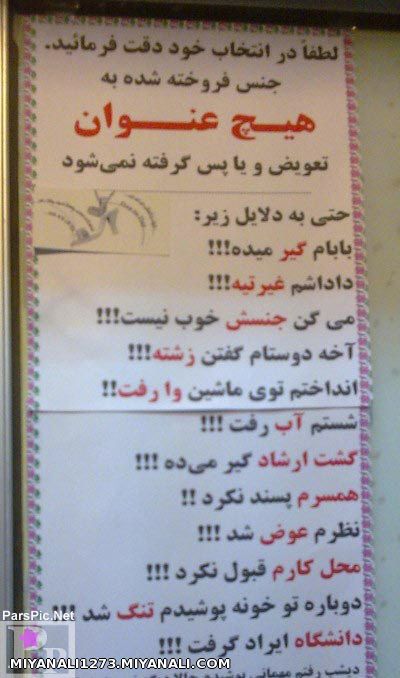 لطفاً در انتخاب خود دقت فرمائید.
جنس فروخته شده به
هیـچ عنـــوان
تعویض و یا پس گرفته نمی‌شود
حتی به دلایل زیر:
بابام گیر میده!!!
داداشم غیرتیه!!!
می گن جنسش خوب نیست!!!
آخه دوستام گفتن زشته!!!
انداختم توی ماشین وا رفت!!
شستم آب رفت !!!
گشت ارشاد گیر می‌ده !!!
همسرم پسند نکرد !!
نظرم عوض شد !!!
محل کارم قبول نکرد !!!
دوباره تو خونه پوشیدم تنگ شد !!!
دانشگاه ایراد گرفت !!!
دیشب رفتم مهمانی
ParsPic.Net
MIYANALI1273.MIYANALI.COM